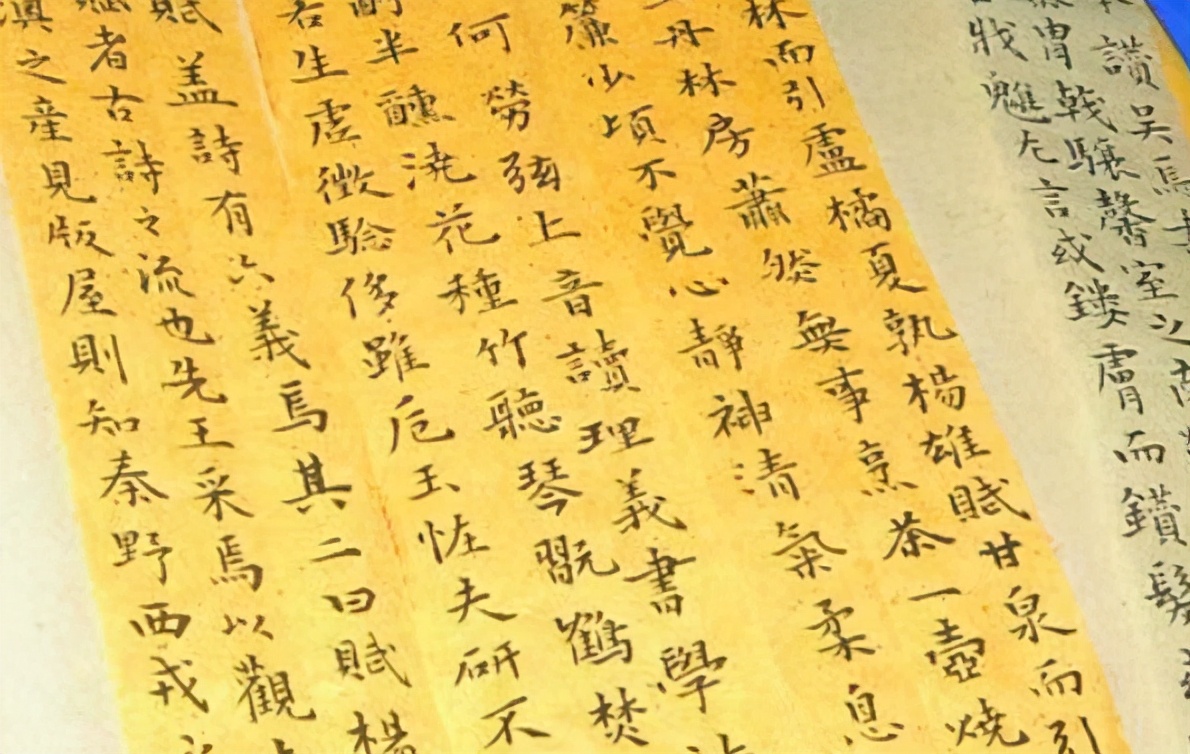 讚吳馬
胄戟驤馨室之
戕魋左言或鏤膚而鑽髮
林而引盧橘夏孰楊雄賦甘泉而引
丹林房蕭然無事烹茶一壺燒
簾少頃不覺心靜神清氣柔息
何勞弦上音讀理義書學
酌半醺澆花種竹聽琴翫鶴焚
若生虛徵驗侈雖卮玉恠夫研不
賦盖詩有六義焉其二曰賦楊
賦者古詩之流也先王采焉以觀
滇之産見版屋則知秦野西戎